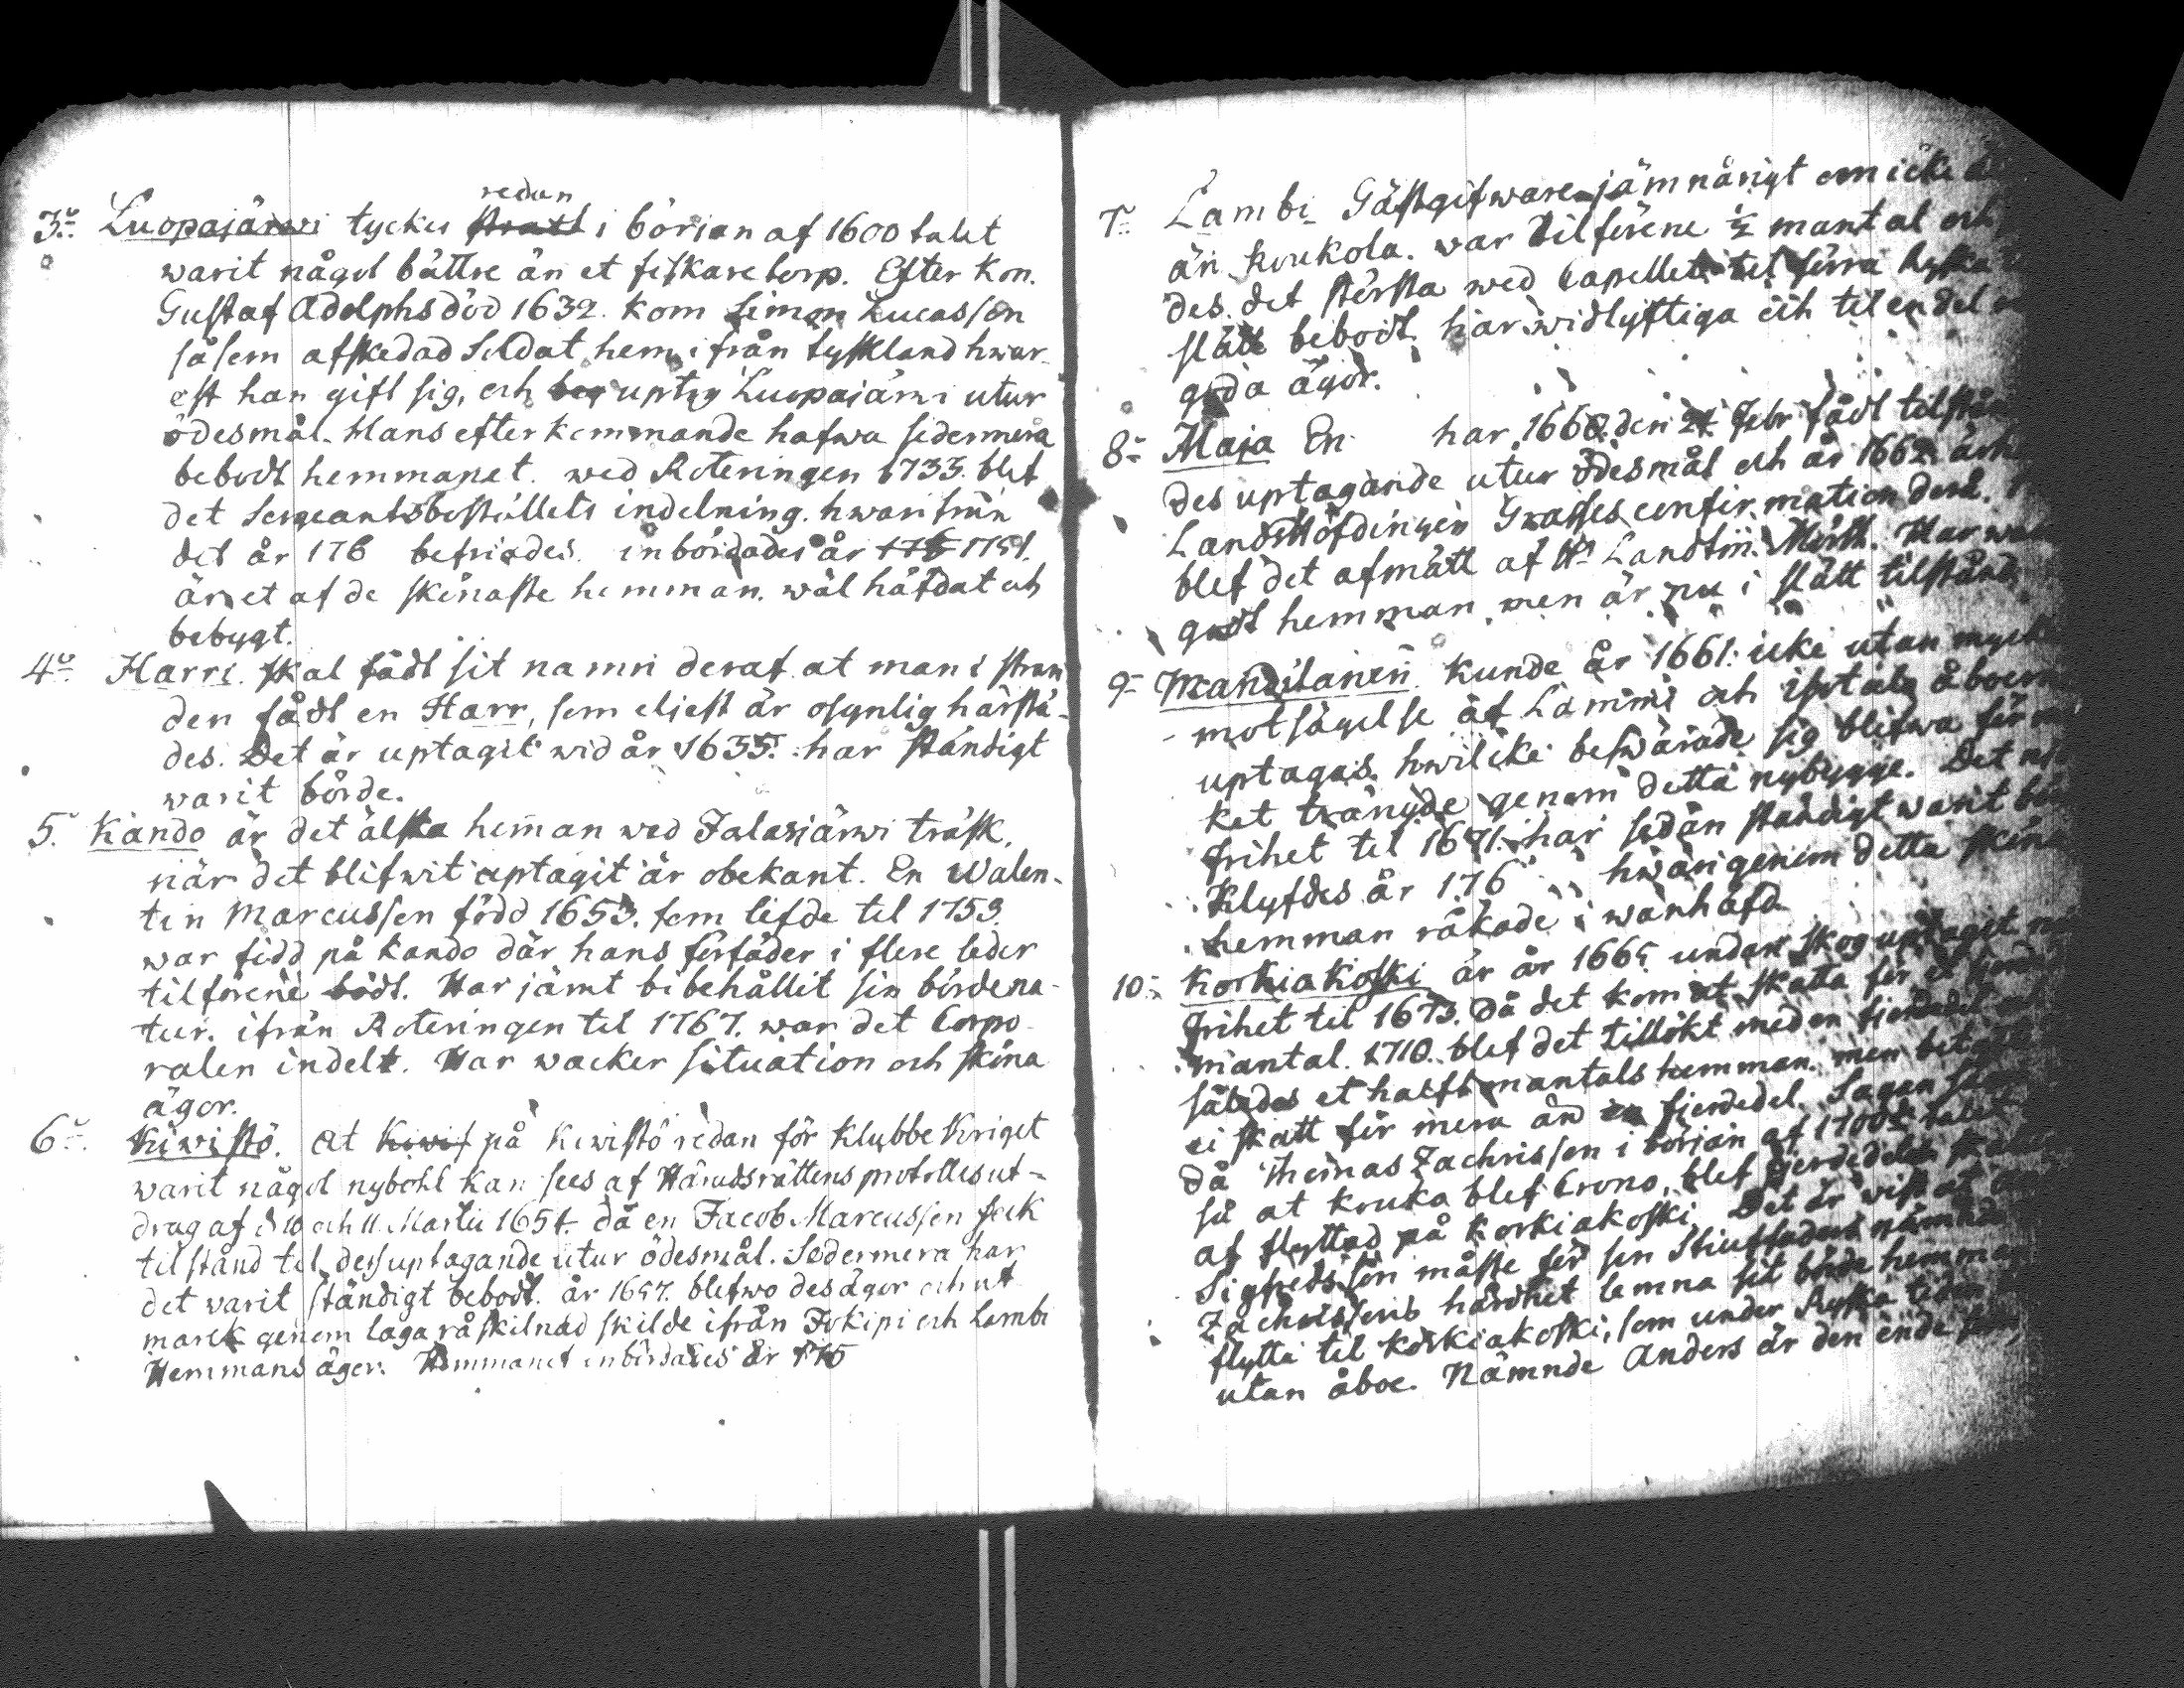 redan
3:o Luopajärwi tyckes i börian af 1600 talet
warit något bättre än et fiskare torp. Efter Kon.
Gustaf Adolphs död 1632. kom Simon Lucasson
såsom afskedad Soldat hem ifrån tyskland hwar-
est han gift sig, och beg uptog Luopajärwi utur
ödesmål. Hans efterkommande hafwa sedermera
bebodt hemmanet. wed Roteringen 1733. blef
det Sergeantsbeställets indelning. hwarifrån
det år 176 befriades. inbördades år 1751.
är et af de skönaste hemman. wäl häfdat och
bebygt.
4:o Harri. skal fådt sit namn deraf at man i stran
den fådt en Harr, som eljest är osynlig härstä-
des. Det är uptagit wid år 1635. har ständigt
warit börde.
5. Kando är det älsta heman wed Jalasjärwi träsk.
när det blifwit uptagit är obekant. En Walen-
tin Marcusson född 1653. som lefde til 1753.
war född på kando där hans förfäder i flere leder
tilförene bodt. Har jämt bibehållit sin bördena-
tur. ifrån Roteringen til 1767. war det Corpo-
ralen indelt. Har wacker situation och sköna
ägor.
6:o Kiwistö. At Kiwis på Kiwistö redan för Klubbe Kriget
warit något nybohl kan sees af Häradsrättens protollesut-
drag af d 10 och 11 Martii 1654. då en Jacob Marcusson feck
tilstånd til dess uptagande utur ödesmål. Sedermera har
det warit ständigt bebodt. år 1697. blefwo des ägor och ut
mark genom laga råskilnad skilde ifrån Jokipi och Lambi
Hemmans ägor. Hemmanet inbördades år 175
7:o Lambi Gästgifware jämnårigt om icke
än koukola. war tilförene ½ mantal och
des. det största wed Capellet. til förra Ryska
slätt bebodt. har widlyftiga och til en del
goda ägor.
8:o Maja En har 1660. den 24 Febr fådt tilstånd
des uptagande utur ödesmål och år 1662.
LandsHöfdingen Grasses confirmation derå.
blef det afmätt af Hr Landtm.
godt hemman, men är nu i slätt tilstånd
9:o Mandilanen. kunde år 1661. icke utan
motsägelse af Lammi och
uptagas. hwilcke beswärade sig blifwa för
ket trängde genom detta nybygge. Det
frihet til 1671. har sedan ständigt warit
Klyfdes år 176 hwarigenom detta
hemman råkade i wanhäfd.
10:o Korkiakoski är år 1665 undan skog uptagit
frihet til 1673. Då det kom at skatta för et
mantal. 1710. blef det tillökt med en fierdedel
således et halft mantals hemman. men
ei skatt för mera än en fierdedel. Sagan
då Thomas Zachrisson i börian af 1700 talet
så at kruka blef Crono, blef fierdedelen
af flyttad på Korkiakoski. Det är wist at
Sigfredsson måste för sin Stiuffaders nämnde
Zachrissons hårdhet lemna sit börde hemman
flytta til korkiakoski, som under Ryska tiden
utan åboe. Nämnde Anders är den ende